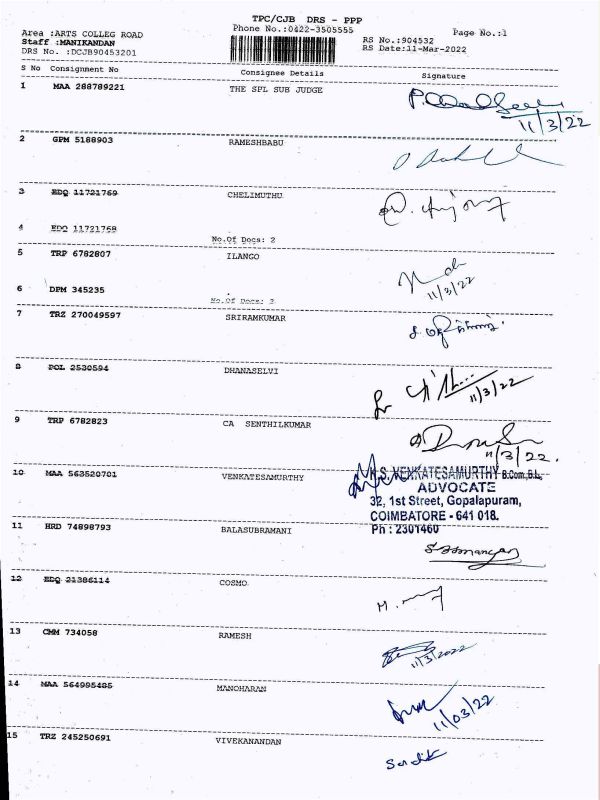 TPC/CJB DRS - PPP
Area :ARTS COLLEG ROAD Phone No.:0422-3505555 Page No.:1
Staff :MANIKANDAN RS No.:904532
DRS No. :DCJB90453201 RS Date:11-Mar-2022
S No Consignment No Consignee Details Signature
1 MAA 288789221 THE SPL SUB JUDGE
11/3/22
2 GPM 5188903 RAMESHBABU
3 EDQ 11721769 CHELIMUTHU
4 EDQ 11721768
No.Of Docs: 2
5 TRP 6782807 ILANGO
11/3/22
6 DPM 345235
No.Of Docs: 2
7 TRZ 270049597 SRIRAMKUMAR
8 POL 2530594 DHANASELVI
11/3/22
9 TRP 6782823 CA SENTHILKUMAR
11/3/22.
10 MAA 563520701 VENKATESAMURTHY
S. VENKATESAMURTHY B.Com,B.L,
ADVOCATE
32, 1st Street, Gopalapuram,
COIMBATORE - 641 018.
Ph : 2301460
11 HRD 74898793 BALASUBRAMANI
12 EDQ 21386114 COSMO
13 CMM 734058 RAMESH
11/3/2022
14 MAA 564995485 MANOHARAN
11/03/22
15 TRZ 245250691 VIVEKANANDAN